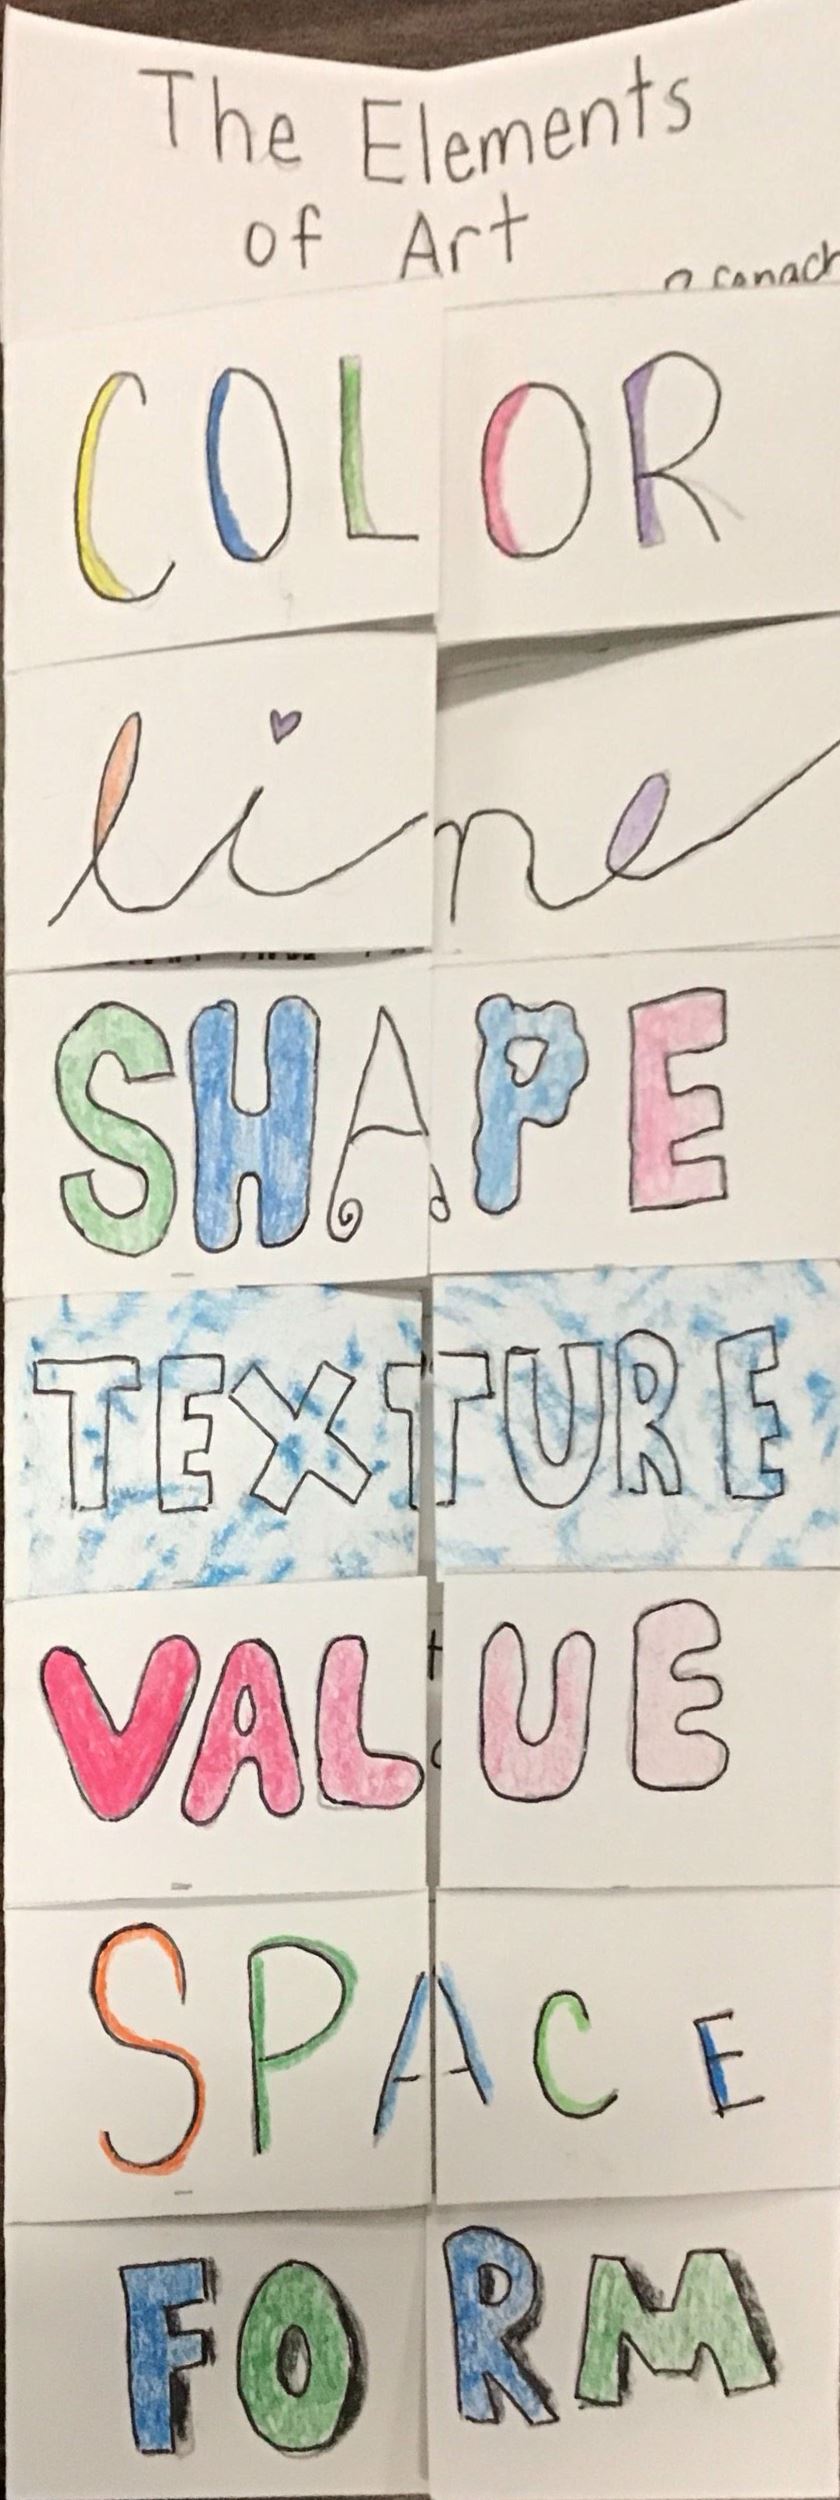 The Elements
of Art
COLOR
line
SHAPE
TEXTURE
VALUE
SPACE
FORM